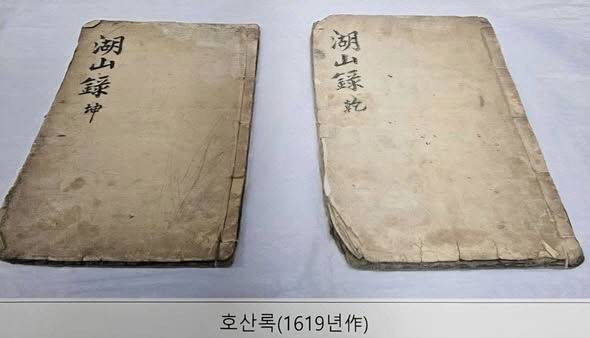 湖山錄 乾
湖山錄 坤
호산록(1619년作)